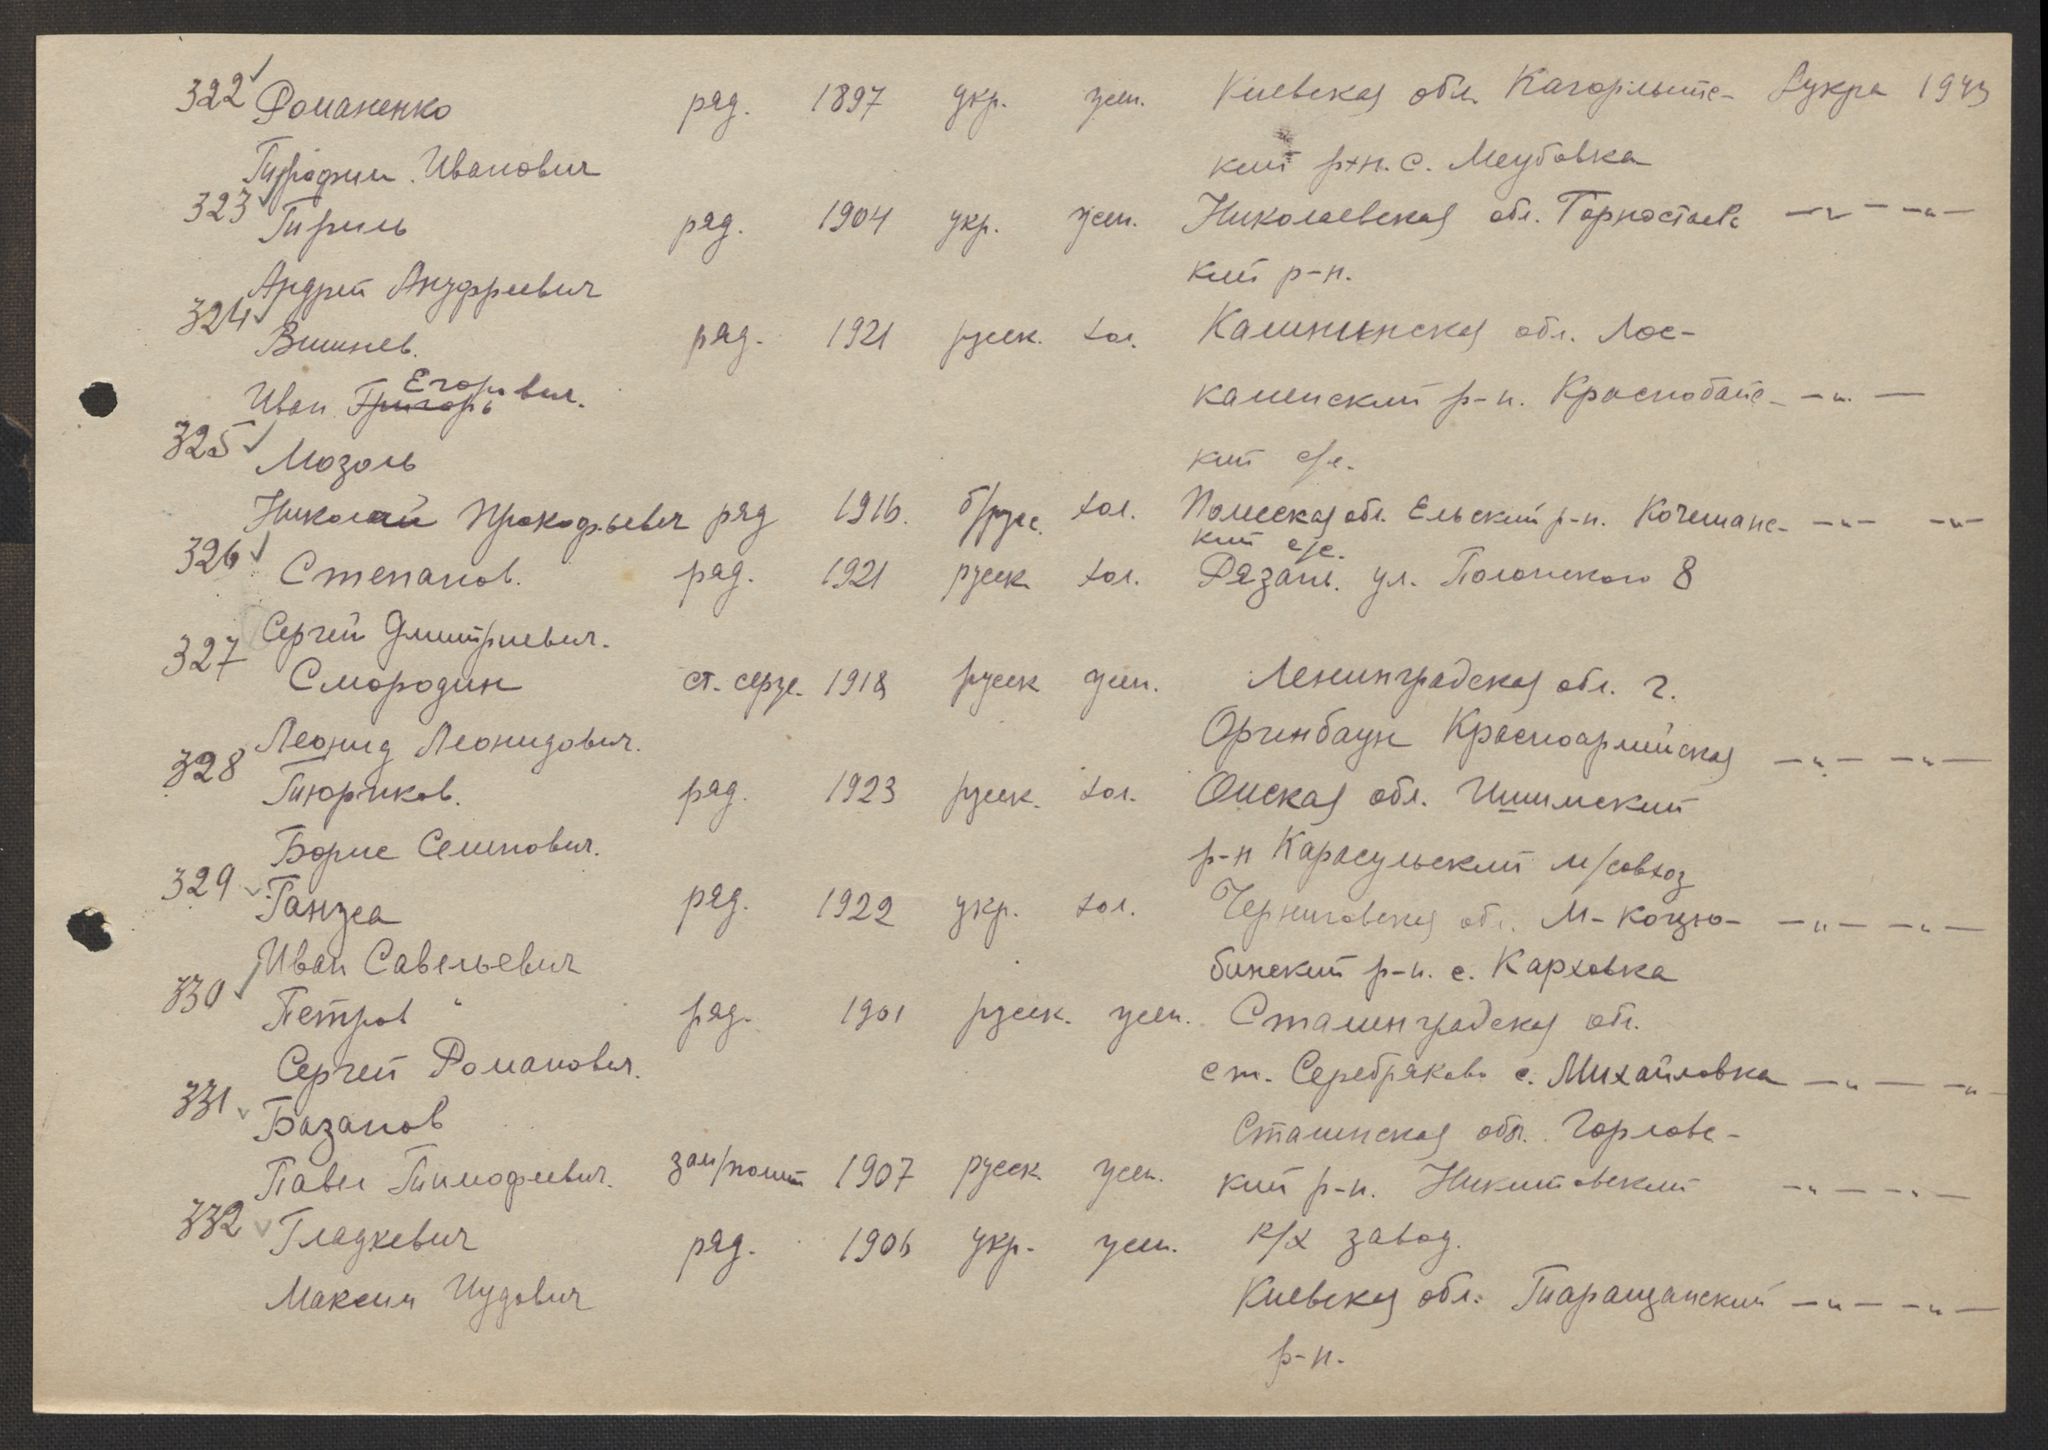 322 Романенко ряд. 1897 укр. жен. Киевская обл. Кагорлытс- Букра 1943
Трофим Иванович кий р-н. с.
323 Гириль ряд. 1904 укр. жен. Николаевская обл. Горностаевс —"— —"—
Андрей Ануфриевич кий р-н.
324 Вишнев. ряд. 1921 русск. хол. Калининская обл. Лос-
Иван Григорь Егорович. каменский р-н. Краснобайс- —"—
325 Мозоль кий с/с.
Николай Прокофьевич ряд 1916. б/русс. хол. Полесская обл. Ельский р-н. Кочеманс- —"— —"—
кий с/с.
326 Степанов. ряд. 1921 русск хол. Рязань. ул. Полонского 8
Сергей Дмитриевич.
327 Смородин ст. серж. 1918 русск жен. Ленинградская обл. г.
Леонид Леонидович. Красноармейская —"— —"—
328 Тюриков. ряд. 1923 русск. хол. Омская обл. Ишимский
Борис Семенович. р-н Карасульский м/совхоз
329 Ганжа ряд. 1922 укр. хол. Черниговская обл. М-Коцю- —"— —"—
Иван Савельевич бинский р-н. с. Карховка
330 Петров ряд. 1901 русск. жен. Сталинградская обл.
Сергей Романович. ст. Серебряково с. Михайловка —"— —"—
331 Базанов Сталинская обл. Горловс-
Павел Тимофеевич. зам/полит 1907 русск. жен. кий р-н. Никитовский —"— —"—
332 Гладкевич ряд. 1906 укр. жен. к/х завод.
Максим Иудович Киевская обл. Таращанский —"— —"—
р-н.